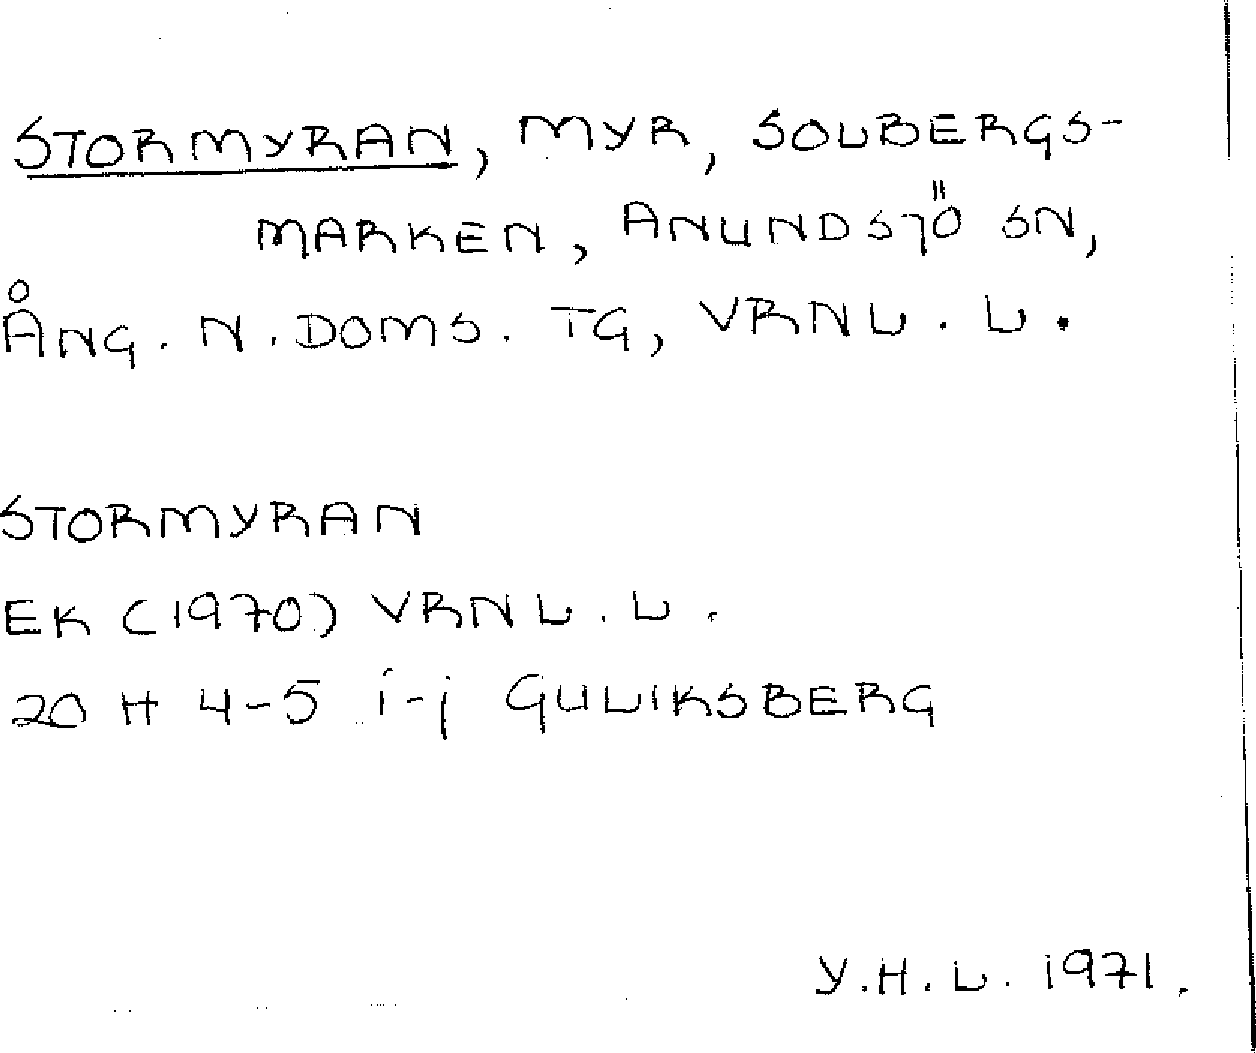 STORMYRAN, MYR, SOLBERGS-
MARKEN, ANUNDSJÖ SN,
ÅNG. N. DOMS. TG, VRNL. L.
STORMYRAN
EK (1970) VRNL. L.
20 H 4-5 i-j GULIKSBERG
Y.H.L. 1971.